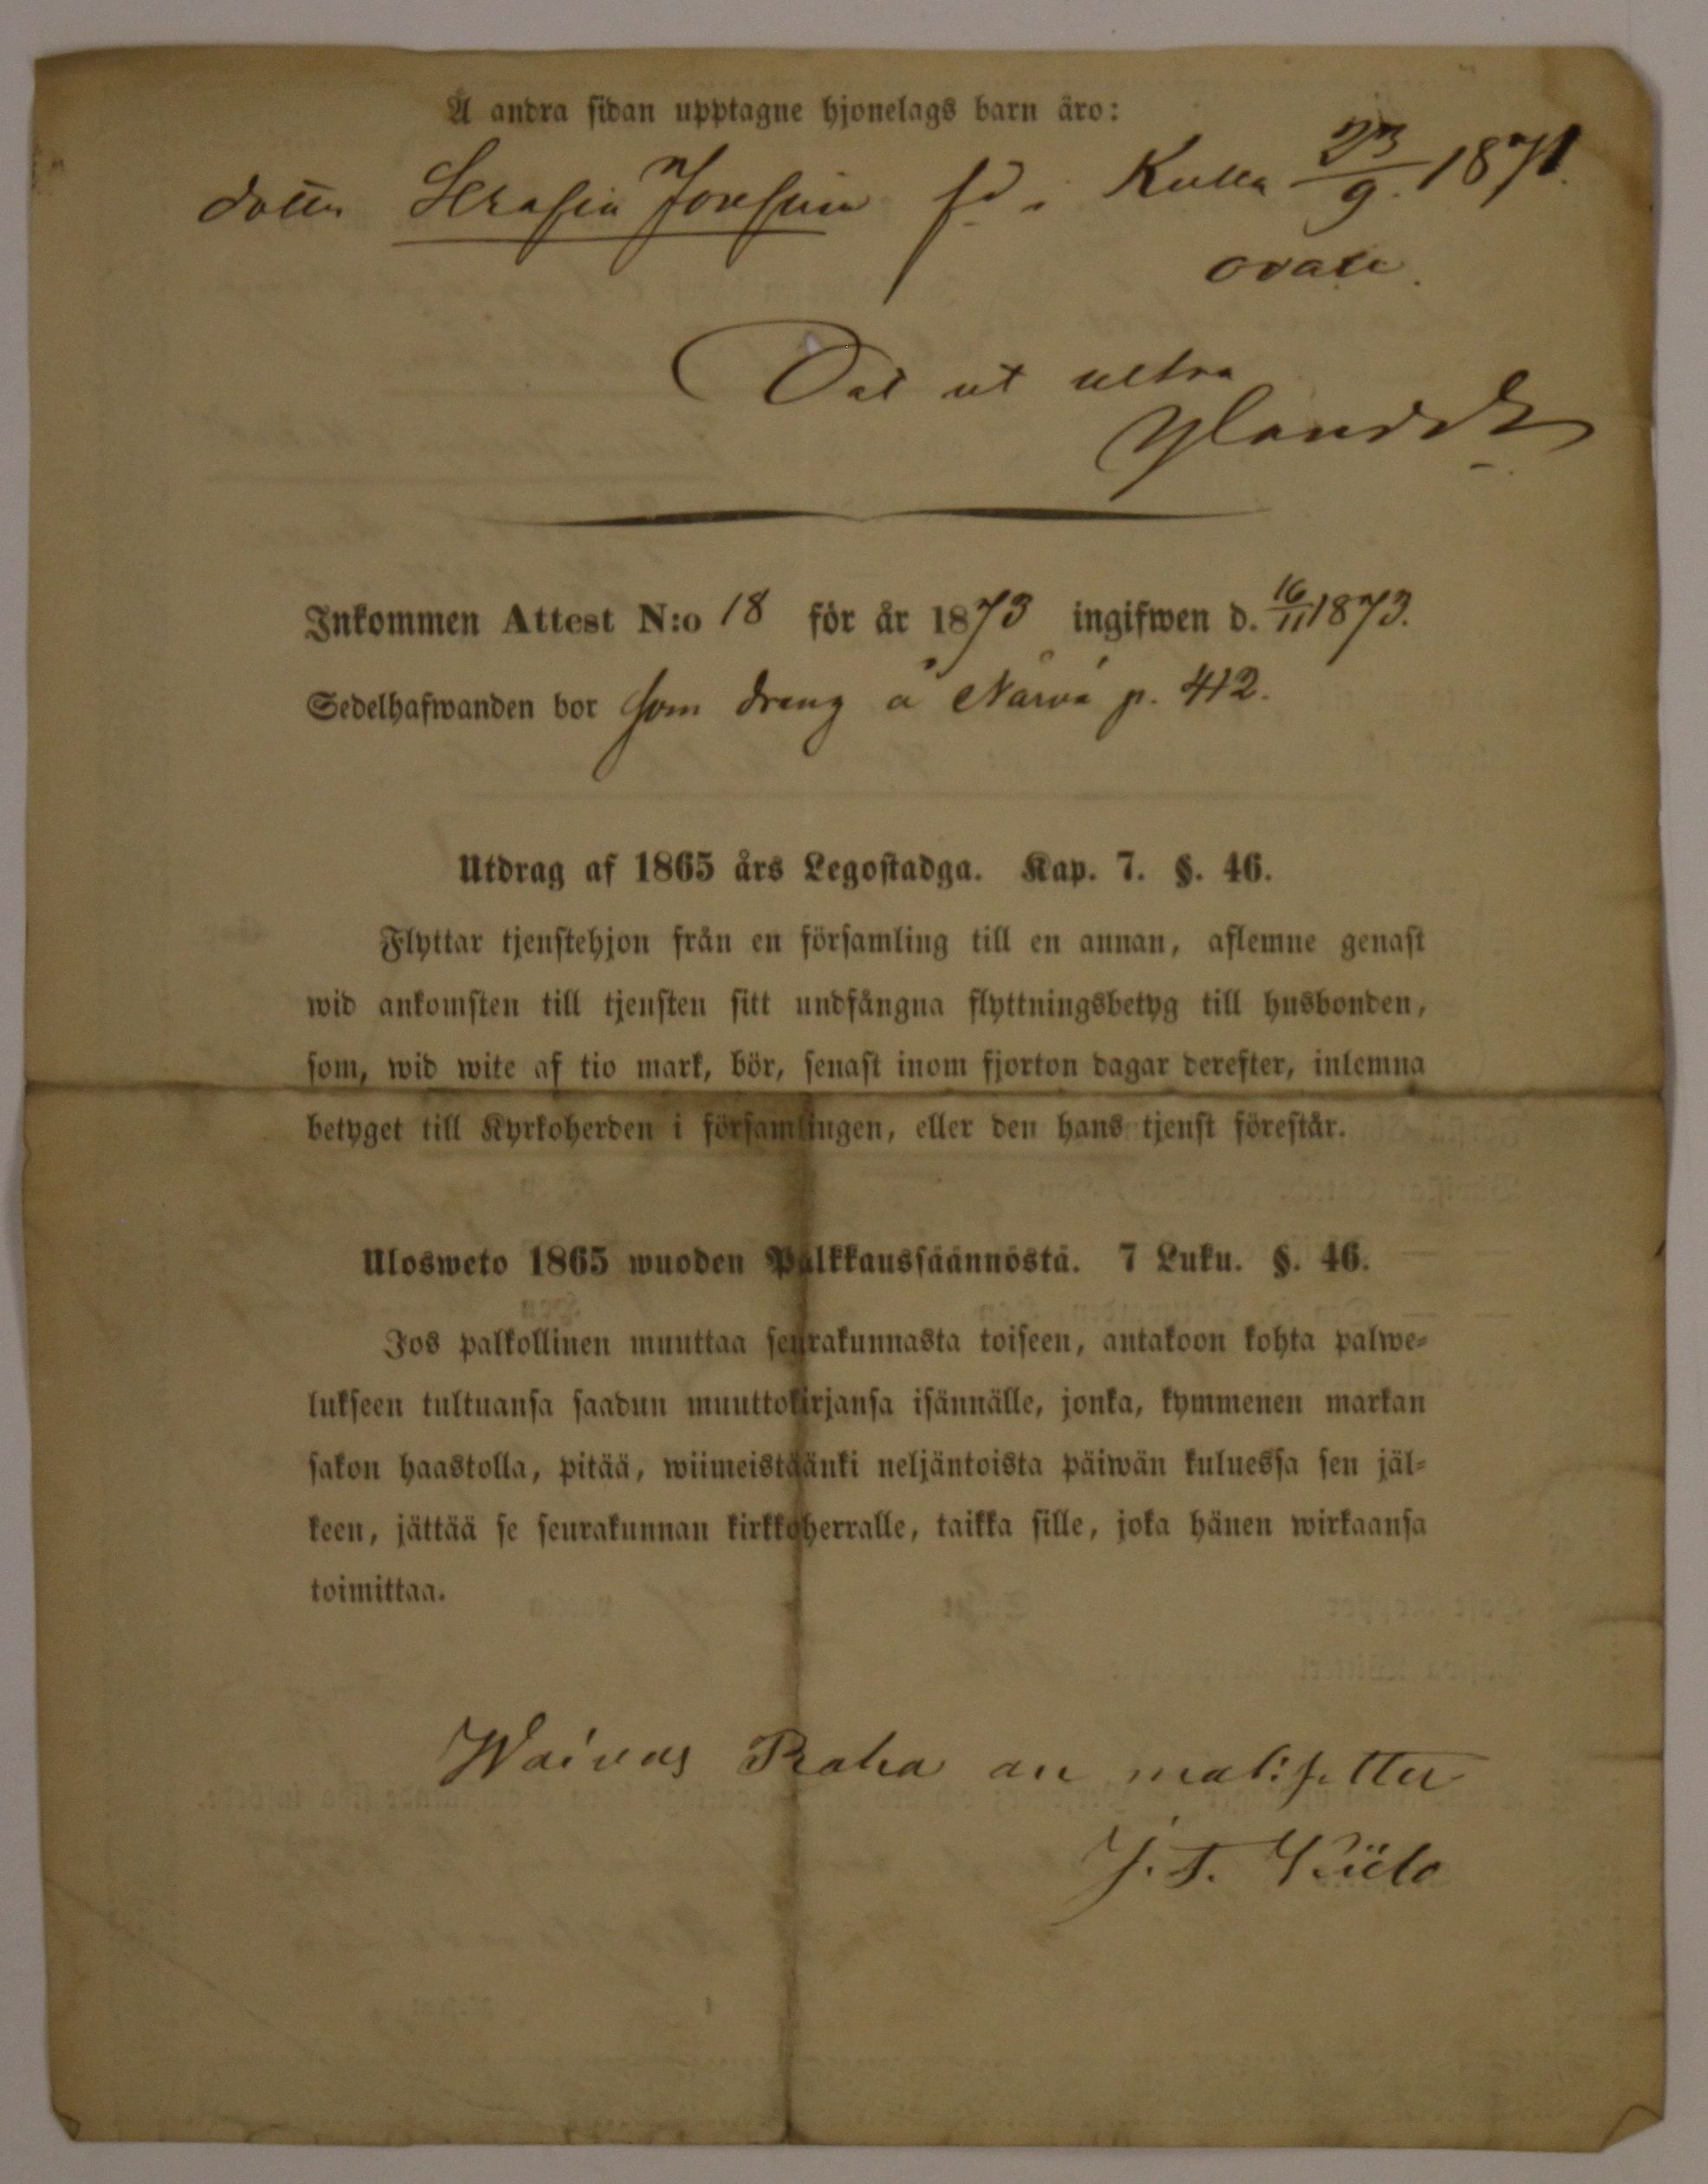 Å andra sidan upptagne hjonelags barn äro:
dotter Serafia Josefina fd. i Kulla 23/9. 1871.
ovacc.
Dat ut ultra
Inkommen Attest N:o 18 för år 1873 ingifwen d. 16/11 1873.
Sedelhafwanden bor som dreng å Närvä p. 412.
Utdrag af 1865 års Legostadga. Kap. 7. §. 46.
Flyttar tjenstehjon från en församling till en annan, aflemne genast
wid ankomsten till tjensten sitt undfångna flyttningsbetyg till husbonden,
som, wid wite af tio mark, bör, senast inom fjorton dagar derefter, inlemna
betyget till Kyrkoherden i församlingen, eller den hans tjenst förestår.
Ulosweto 1865 wuoden Palkkaussäännöstä. 7 Luku. §. 46.
Jos palkollinen muuttaa seurakunnasta toiseen, antakoon kohta palwe-
lukseen tultuansa saadun muuttokirjansa isännälle, jonka, kymmenen markan
sakon haastolla, pitää, wiimeistäänki neljäntoista päiwän kuluessa sen jäl-
keen, jättää se seurakunnan kirkkoherralle, taikka sille, joka hänen wirkaansa
toimittaa.
Raha an
J.